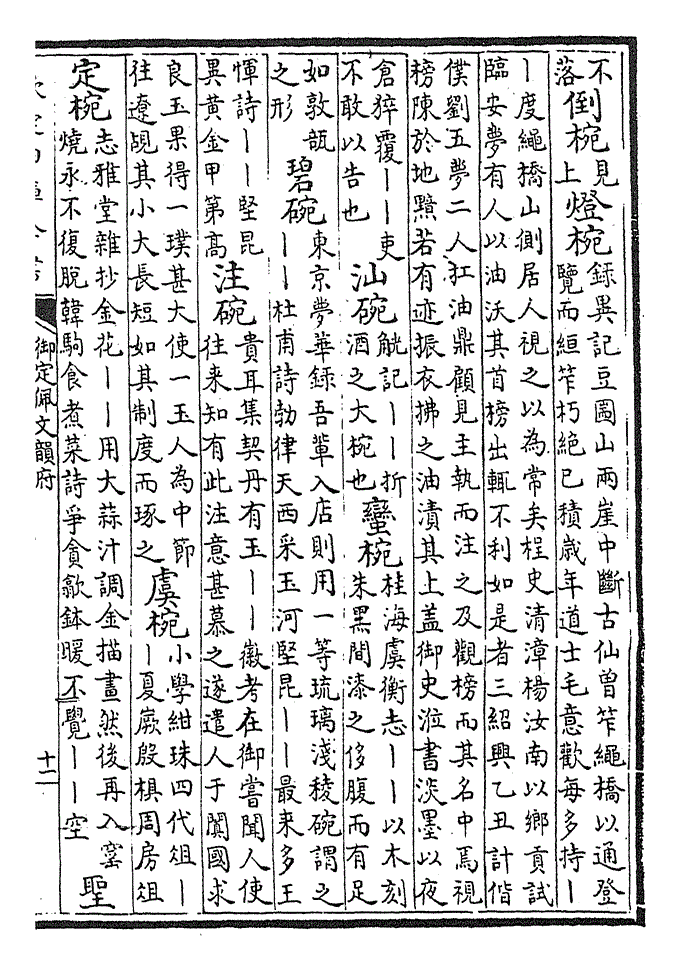 不
落
倒椀
見
上
燈椀
録異記豆圌山兩崖中斷古仙曽笮繩橋以通登
覽而絙笮朽絶已積歲年道士毛意歡每多持丨
丨度繩橋山側居人視之以為常矣桯史清漳楊汝南以鄉貢試
臨安夢有人以油沃其首榜出輒不利如是者三紹興乙丑計偕
僕劉五夢二人扛油鼎顧見主執而注之及觀榜而其名中焉視
榜陳於地黯若有迹振衣拂之油漬其上蓋御史涖書淡墨以夜
倉猝覆丨丨吏
不敢以告也
汕碗
觥記丨丨折
酒之大椀也
蠻椀
桂海虞衡志丨丨以木刻
朱黑間漆之侈腹而有足
如敦瓿
之形
碧碗
東京夢華録吾輩入店則用一等琉璃淺稜碗謂之
丨丨杜甫詩勃律天西采玉河堅昆丨丨最来多王
惲詩丨丨堅昆
異黄金甲第髙
注碗
貴耳集契丹有玉丨丨徽考在御嘗聞人使
往来知有此注意甚慕之遂遣人于闐國求
良玉果得一璞甚大使一玉人為中節
往遼覘其小大長短如其制度而琢之
虞椀
小學紺珠四代俎丨
丨夏嶡殷椇周房俎
定椀
志雅堂雜抄金花丨丨用大蒜汁調金描畫然後再入窰
燒永不復脫韓駒食煮菜詩爭貪歙鉢暖不覺丨丨空
聖
御定佩文韻府
十二